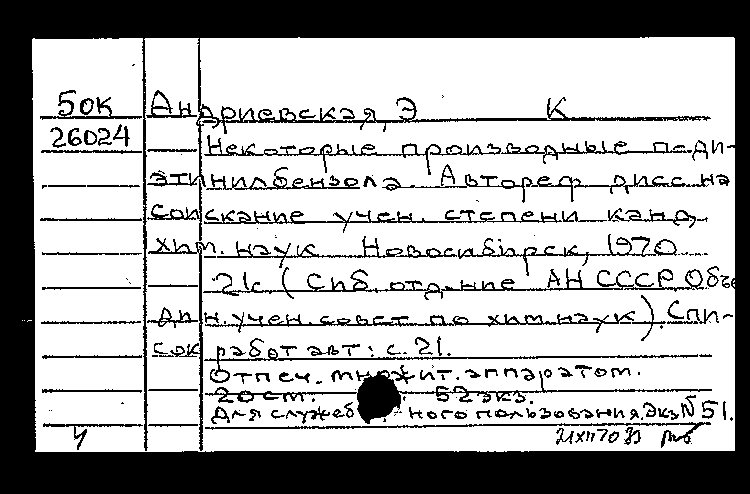 БОК Андриевская, Э К
26024 Некоторые производные п-ди-
этинилбензола. Автореф дисс на
соискание учен. степени канд,
хим. наук Новосибирск, 1970.
21с (Сиб. отд-ние АН СССР Объе
дин. учен. совет по хим. наук). Спи-
сок работ авт: с. 21.
Отпеч. множит. аппаратом.
20 см. 52 экз.
Для служеб ного пользования. Экз № 51.
Ч